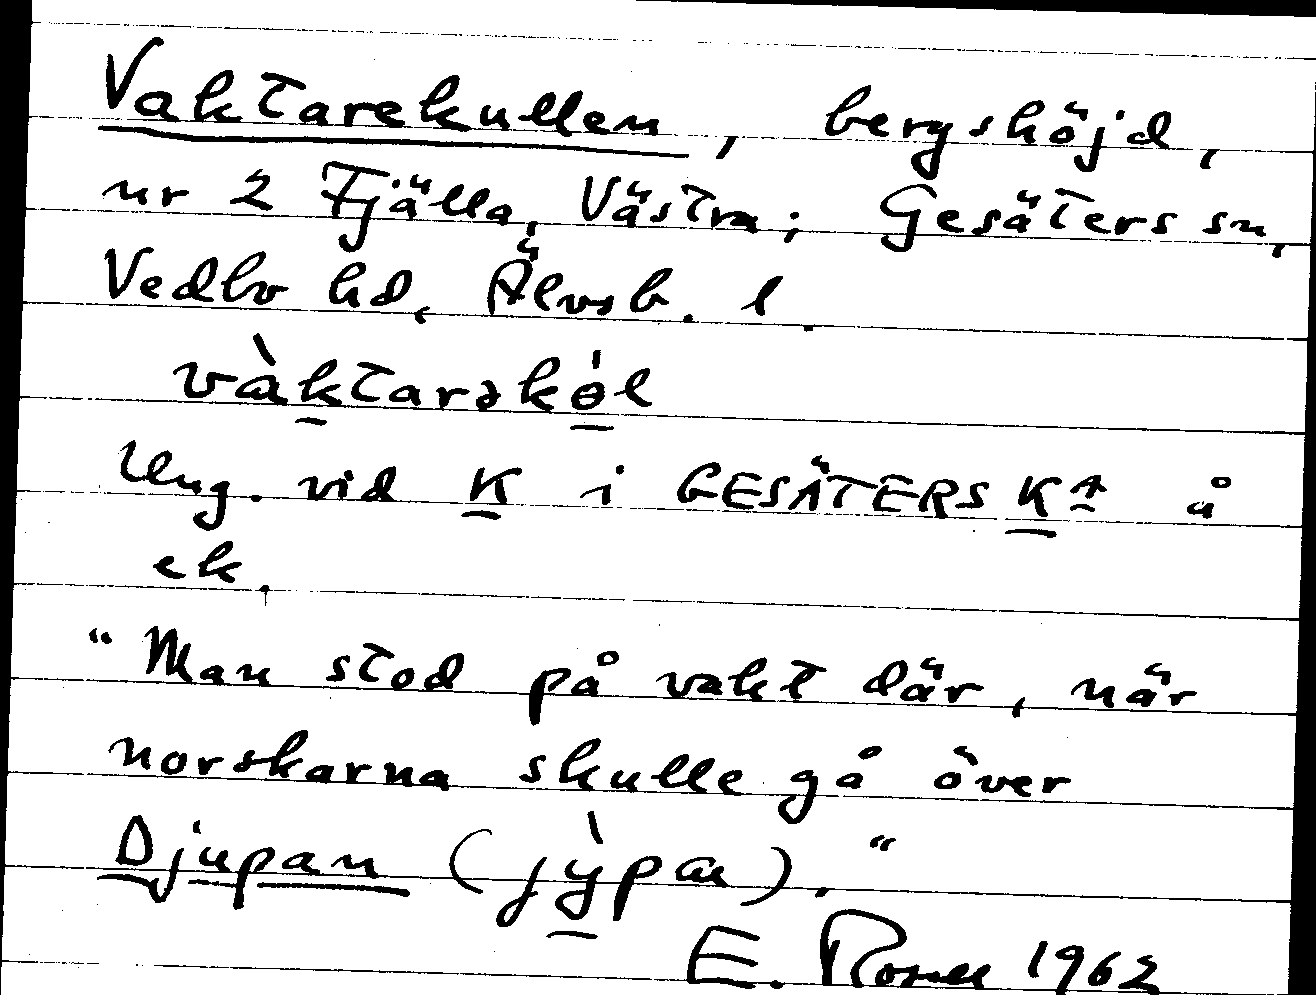 Vaktarekullen, bergshöjd,
nr 2 Fjälla, Västra; Gesäters sn,
Vedbo hd, Älvsb. l.
vàktarəkɵ́l
Ung. vid K i GESÄTERS Ka å
ek.
"Man stod på vakt där, när
norskarna skulle gå över
Djupan (jỳpan)."
E. Rosell 1962